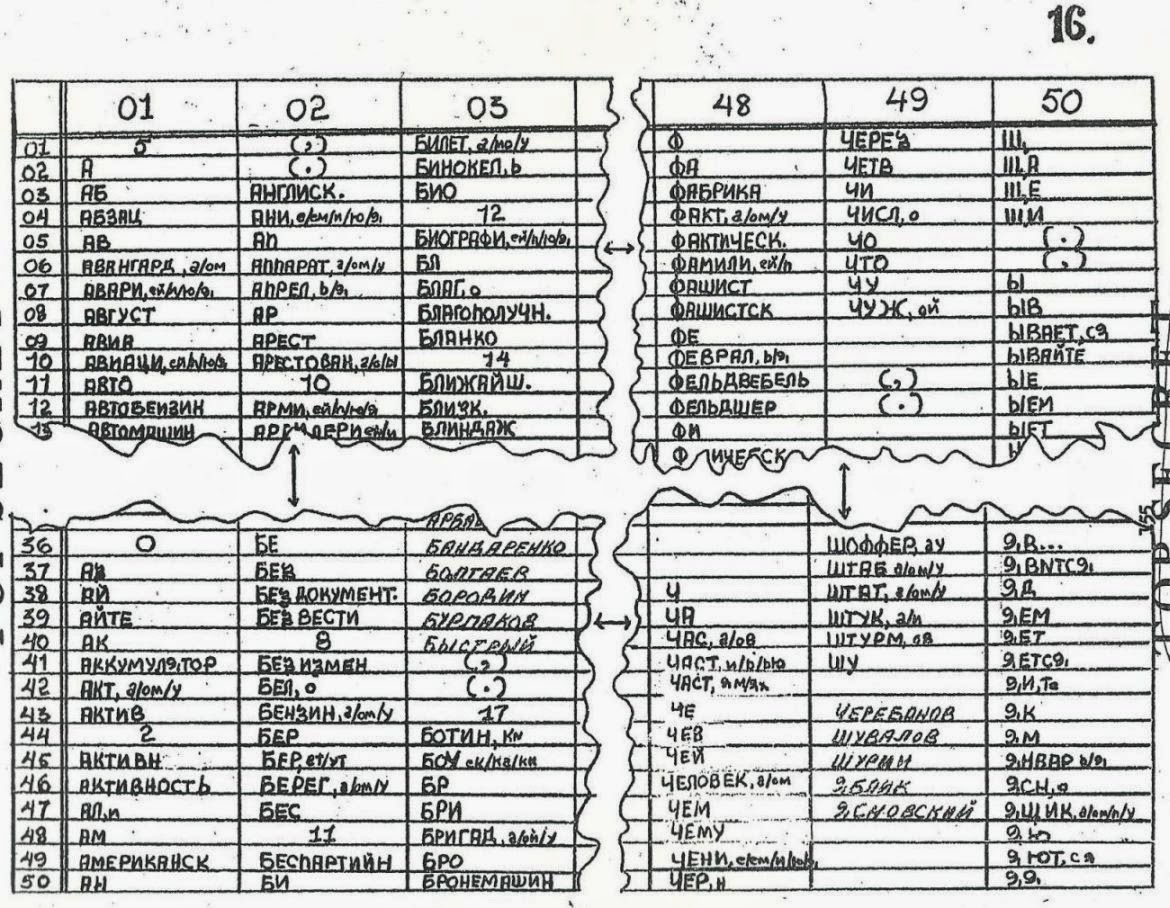 16.
01 02 03 48 49 50
01 5 (,) БИЛЕТ, а/ме/у Ф ЧЕРЕЗ Щ,
02 А (.) БИНОКЕЛ, Ь ФА ЧЕТВ Щ,А
03 АБ АНГЛИСК. БИО ФАБРИКА ЧИ Щ,Е
04 АБЗАЦ АНИ, е/ем/и/ю/я 12 ФАКТ, а/ом/у ЧИСЛ, о Щ,И
05 АВ АП БИОГРАФИ, ей/и/ю/я ФАКТИЧЕСК. ЧО (.)
06 АВАНГАРД, а/ом АППАРАТ, а/ом/у БЛ ФАМИЛИ, ей/и ЧТО (,)
07 АВАРИ, ей/и/ю/я АПРЕЛ, ь/я БЛАГ, о ФАШИСТ ЧУ Ы
08 АВГУСТ АР БЛАГОПОЛУЧН. ФАШИСТСК ЧУЖ, ой ЫВ
09 АВИА АРЕСТ БЛАНКО ФЕ ЫВАЕТ, СЯ
10 АВИАЦИ, ей/и/ю/я АРЕСТОВАН, а/о/ы 14 ФЕВРАЛ, ь/я ЫВАЙТЕ
11 АВТО 10 БЛИЖАЙШ. ФЕЛЬДВЕБЕЛЬ (,) ЫЕ
12 АВТОБЕНЗИН АРМИ, ей/и/ю/я БЛИЗК. ФЕЛЬДШЕР (.) ЫЕМ
13 АВТОМАШИН БЛИНДАЖ ФИ ЫЕТ
36 0 БЕ БАНДАРЕНКО ШОФФЕР, ау Я,В...
37 АЗ БЕЗ БОЛТАЕВ ШТАБ а/ом/у Я,ВИТСЯ
38 АЙ БЕЗ ДОКУМЕНТ. БОРОДИН Ч ШТАТ, а/ом/у Я,Д
39 АЙТЕ БЕЗ ВЕСТИ БУРЛАКОВ ЧА ШТУК, а/и Я,ЕМ
40 АК 8 БЫСТРЫЙ ЧАС, а/ов ШТУРМ, ов Я,ЕТ
41 АККУМУЛЯТОР БЕЗ ИЗМЕН (,) ЧАСТ, и/ь/ью ШУ Я,ЕТСЯ
42 АКТ, а/ом/у БЕЛ, о (.) ЧАСТ, ям/ях Я,И,Те
43 АКТИВ БЕНЗИН, а/ом/у 17 ЧЕ ЧЕРЕБАНОВ Я,К
44 2 БЕР БОТИН, кн ЧЕВ ШУВАЛОВ Я,М
45 АКТИВН БЕР, ет/ут БОЧ ек/ка/ки ЧЕЙ ШУРМИ Я,НВАР ь/я
46 АКТИВНОСТЬ БЕРЕГ, а/ом/у БР ЧЕЛОВЕК, а/ом Я,БЛИК Я,СН, о
47 АЛ, и БЕС БРИ ЧЕМ Я,СНОВСКИЙ Я,ЩИК, а/ом/и/у
48 АМ 11 БРИГАД, а/ой/у ЧЕМУ Я,Ю
49 АМЕРИКАНСК БЕСПАРТИЙН БРО ЧЕНИ, е/ем/и/ю/я Я,ЮТ, ся
50 АН БИ БРОНЕМАШИН ЧЕР, н Я,Я
155